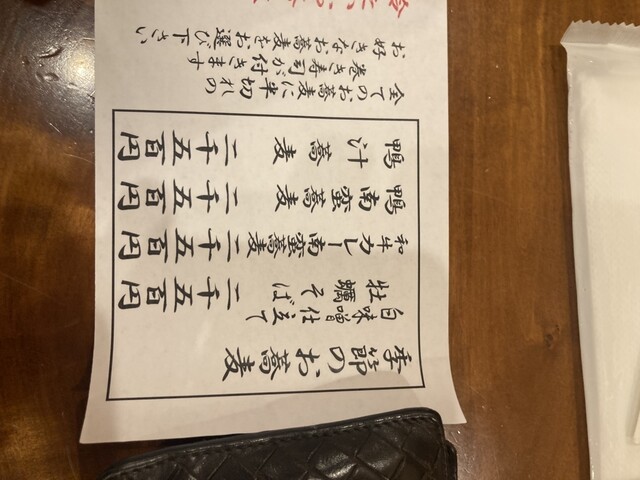 季節のお蕎麦
白味噌仕立て
牡蠣そば 二千五百円
和牛カレー南蛮蕎麦 二千五百円
鴨南蛮蕎麦 二千五百円
鴨汁蕎麦 二千五百円
全てのお蕎麦に半切れの
巻き寿司が付きます
お好きなお蕎麦をお選び下さい